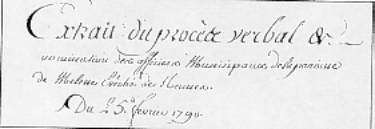 Extrait du procèz verbal &c.
nomination des officiers Municipaux de la paroisse
de Melesse Evêché de Rennes.
Du 5. février 1790.